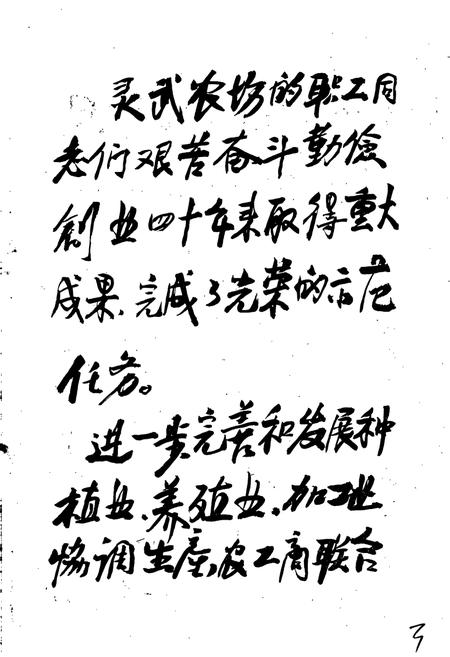 灵武农场的职工同
志们艰苦奋斗勤俭
創业四十年来取得重大
成果、完成了光荣的示范
任务。
进一步完善和发展种
植业、养殖业、加工业
协调生产农工商联合
3